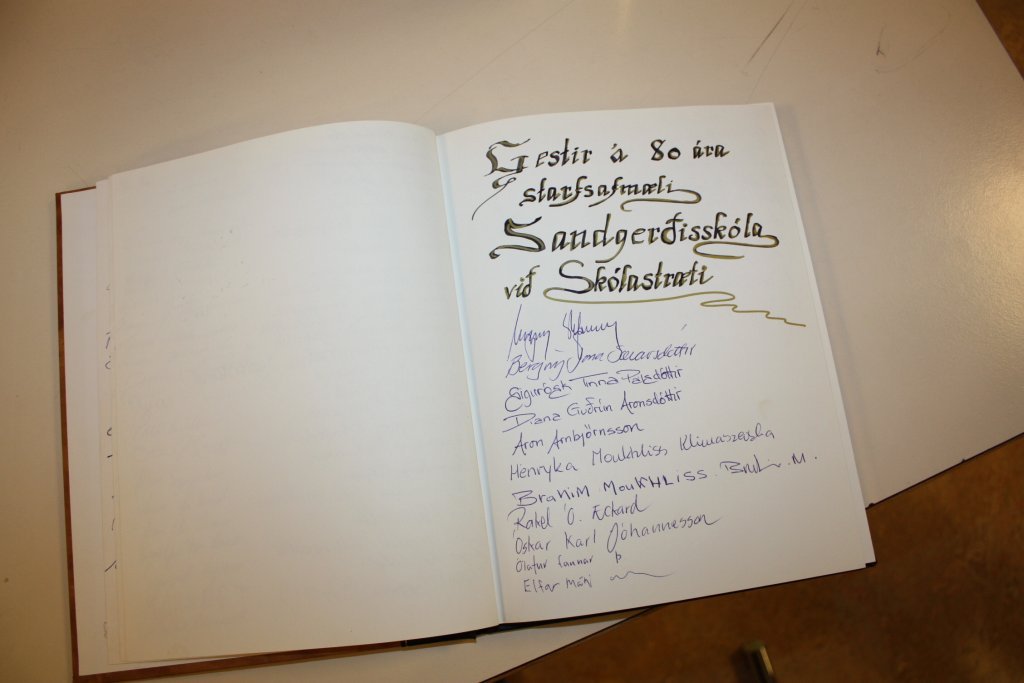 Gestir á 80 ára
starfsafmæli
Sandgerðisskóla
við Skólastræti
Bergný Jóna Sævarsdóttir
Tinna Pálsdóttir
Diana Guðrún Aronsdóttir
Aron Arnbjörnsson
Henryka Moukhliss Klimaszewska
BRAHIM MOUKHLISS. M.
Rakel Ó. Eckard
Óskar Karl Jóhannesson
Ólafur fannar Þ
Elfar Máni